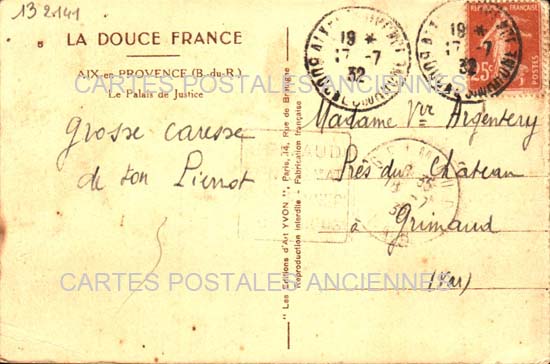 13 2141
5 LA DOUCE FRANCE
AIX-en-PROVENCE (B.-du-R.)
Le Palais de Justice
Grosse caresse
de ton Pierrot
"Les Editions d'Art YVON", Paris, 14, Rue de Bretagne
Reproduction interdite - Fabrication française
19 *
17 - 7
32
19 *
17 - 7
32
RÉPUBLIQUE FRANÇAISE
25c
POSTES
Madame Vve Argentery
Près du Château
à Grimaud
(Var)
CARTES POSTALES ANCIENNES
CARTES POSTALES ANCIENNES